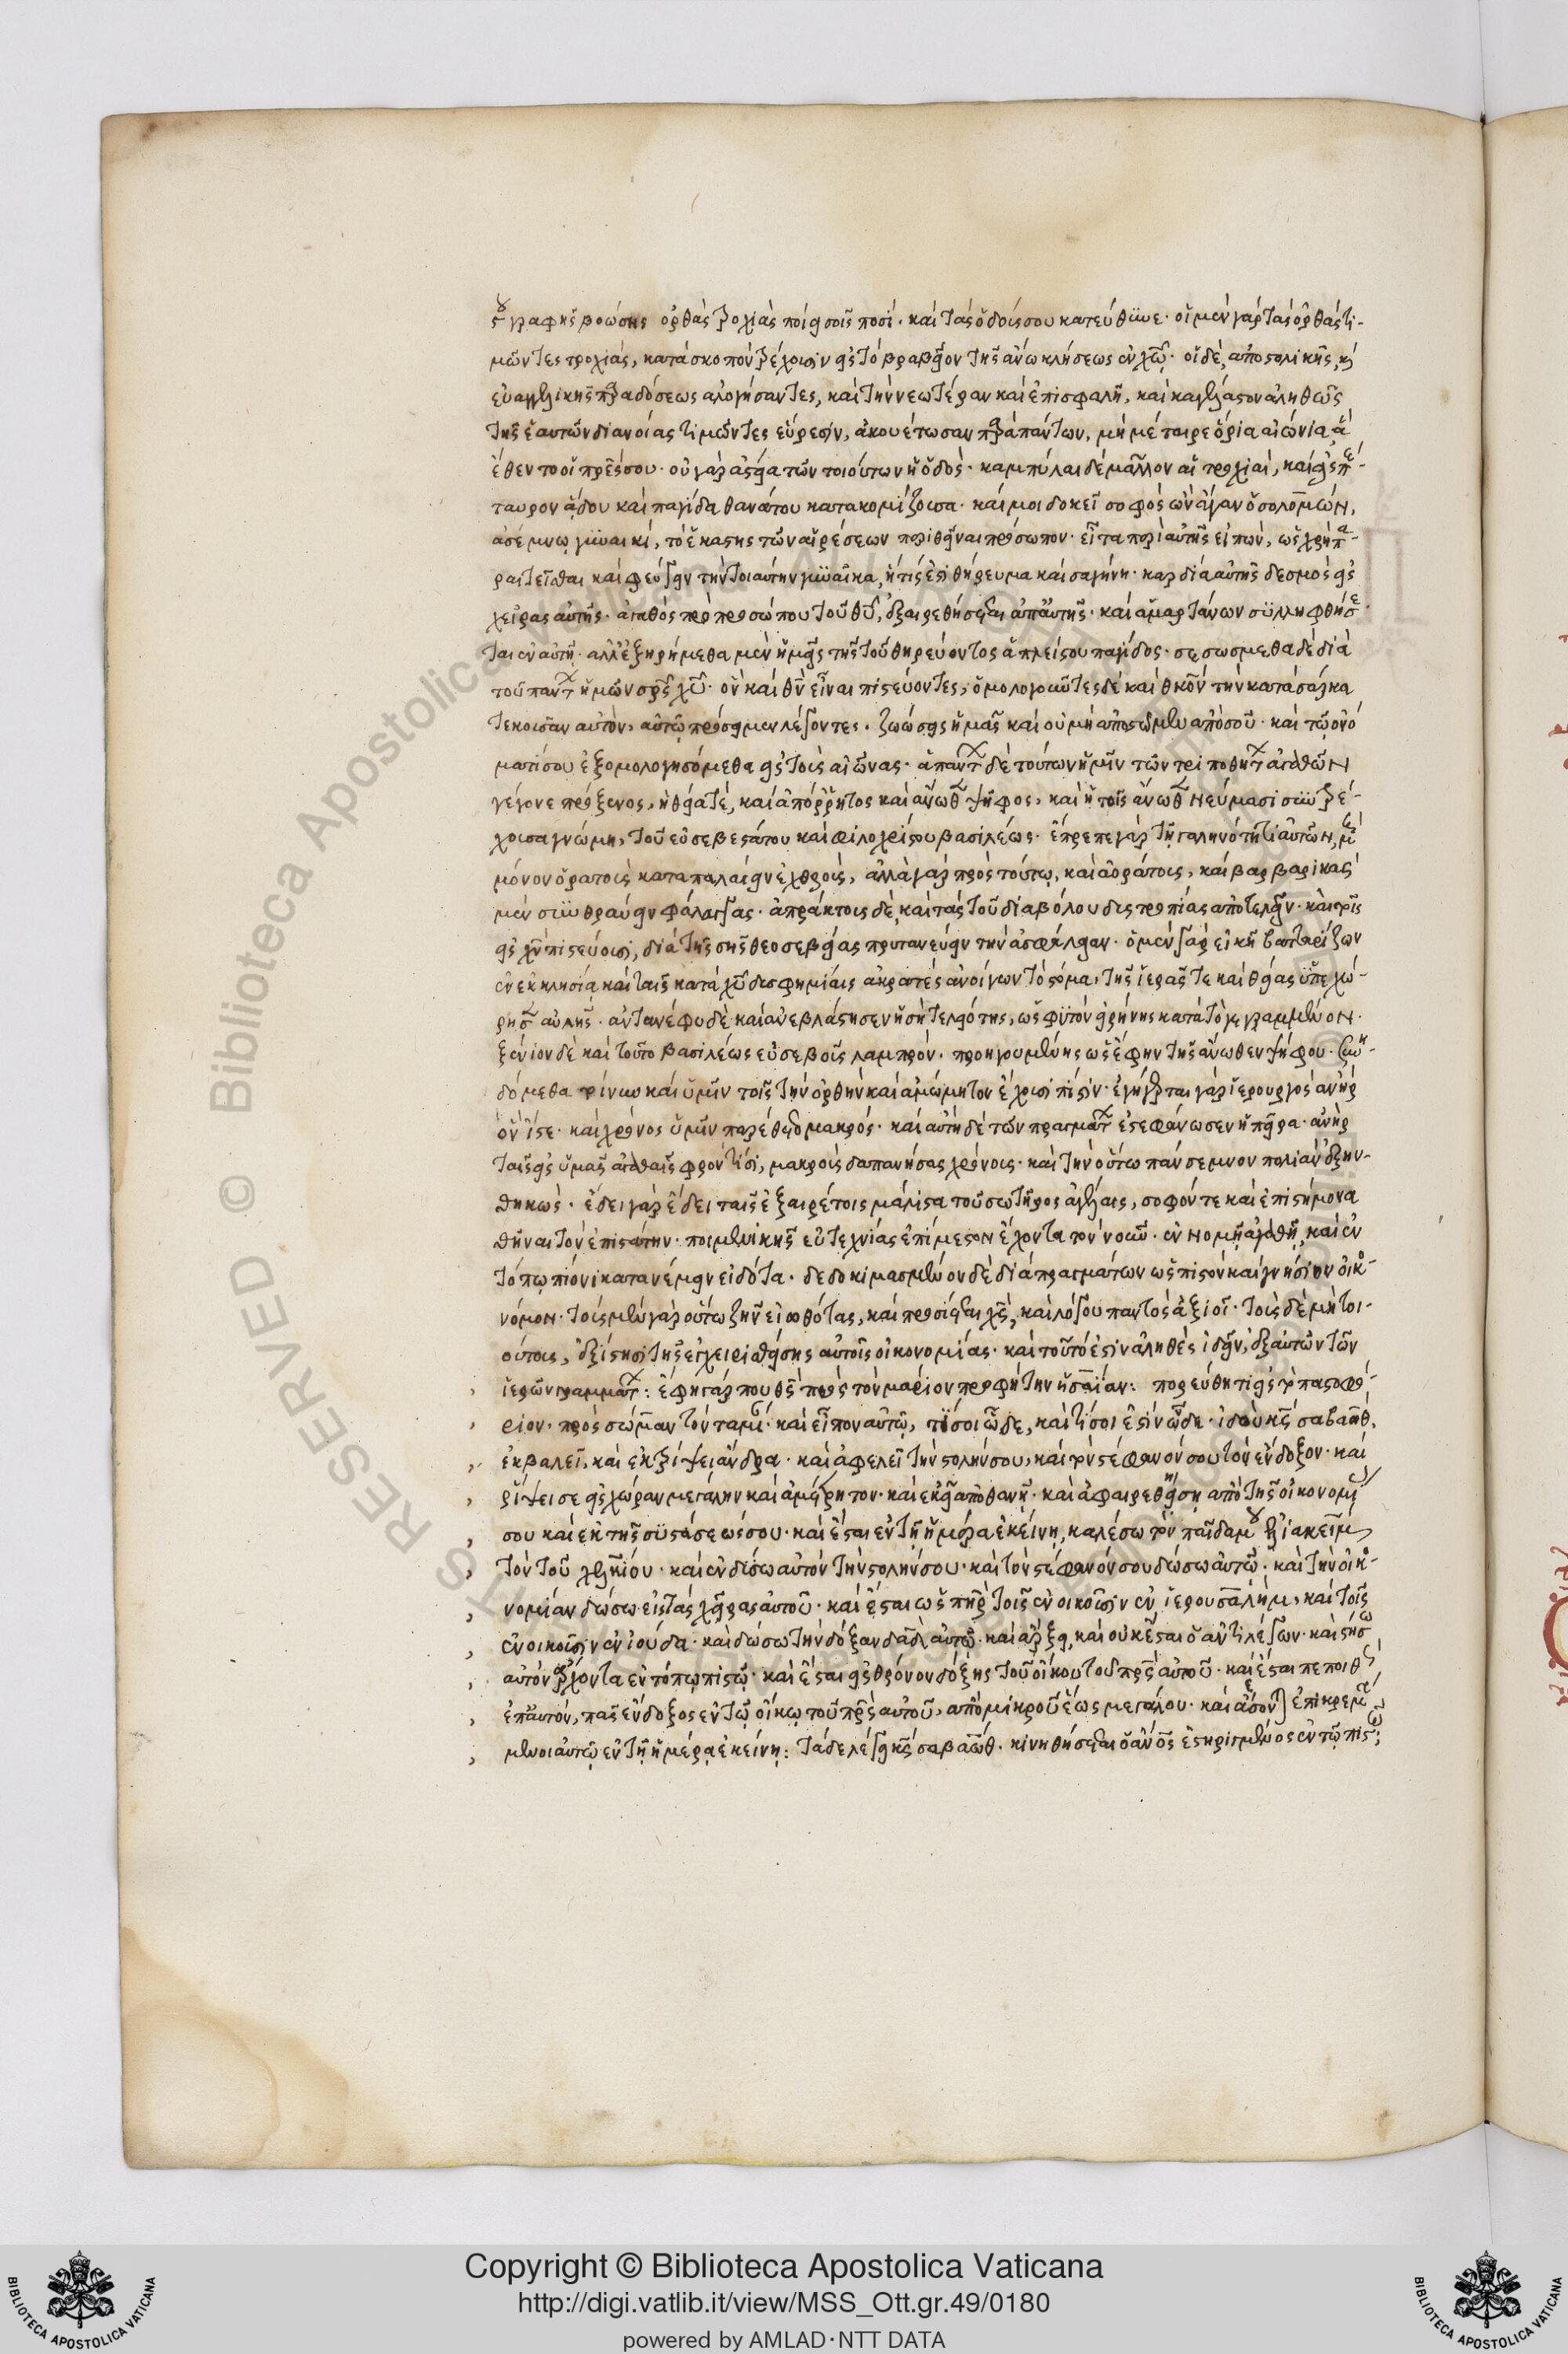 γραφῆς βοώσης ὀρθὰς τροχιὰς ποίει σοῖς ποσί. καὶ τὰς ὁδούς σου κατεύθυνε· οἱ μὲν γὰρ τὰς ὀρθὰς τι-
μῶντες τροχιάς, κατὰ σκοπὸν τρέχουσιν εἰς τὸ βραβεῖον τῆς ἄνω κλήσεως ἐν χῶ· οἱ δὲ, ἀποστολικῆς, κ
εὐαγγελικῆς παραδόσεως ἀλογήσαντες, καὶ τὴν νεωτέραν καὶ ἐπισφαλῆ, καὶ καταγέλαστον ἀληθῶς
τῆς ἑαυτῶν διανοίας τιμῶντες εὕρεσιν, ἀκουέτωσαν παρὰ πάντων, μὴ μέταιρε ὅρια αἰώνια ἃ
ἔθεντο οἱ πρές σου· οὐ γὰρ ἀστεία τῶν τοιούτων ἡ ὁδός· καμπύλαι δὲ μᾶλλον αἱ τροχιαὶ, καὶ εἰς πέ-
ταυρον ἅδου καὶ παγίδα θανάτου κατακομίζουσα· καί μοι δοκεῖ σοφὸς ὢν ἄγαν ὁ σολομών,
ἀσέμνω γυναικί, τὸ ἑκάστης τῶν αἱρέσεων περιθεῖναι πρόσωπον· εἶτα περὶ αὐτῆς εἰπὼν, ὡς χρὴ πα-
ραιτεῖσθαι καὶ φεύγειν τὴν τοιαύτην γυναῖκα, ἥτις ἐστὶ θήρευμα καὶ σαγήνη· καρδία αὐτῆς δεσμὸς εἰς
χεῖρας αὐτῆς· ἀγαθὸς πρὸ προσώπου τοῦ θῦ, ἐξαιρεθήσεται ἀπ' αὐτῆς· καὶ ἁμαρτάνων συλληφθήσε
ται ἐν αὐτῇ· ἀλλ' ἐξῃρήμεθα μὲν ἡμεῖς τῆς τοῦ θηρεύοντος ἀπλείστου παγίδος· σεσώσμεθα δὲ διὰ
τοῦ πάντ ἡμῶν σρς χῦ· ὃν καὶ θν εἶναι πιστεύοντες, ὁμολογοῦντες δὲ καὶ θκον τὴν κατὰ σάρκα
τεκοῦσαν αὐτόν, αὐτῷ προσῇμεν λέγοντες. ζωώσεις ἡμᾶς καὶ οὐ μὴ ἀποστῶμεν ἀπὸ σοῦ· καὶ τῷ ὀνό
ματί σου ἐξομολογησόμεθα εἰς τοὺς αἰῶνας· ἁπάντ δὲ τούτων ἡμῖν τῶν τριποθήτ ἀγαθῶν
γέγονε πρόξενος, ἡ θεία τέ, καὶ ἀπόρρητος καὶ ἄνωθ ψῆφος, καὶ ἡ τοῖς ἄνωθ νεύμασι συντρέ-
χουσα γνώμη, τοῦ εὐσεβεστάτου καὶ φιλοχρίστου βασιλέως· ἔπρεπε γὰρ τῇ γαληνότητι αὐτῶν, μὴ
μόνον ὁρατοὺς καταπαλαίειν ἐχθρούς, ἀλλὰ γὰρ πρὸς τούτω, καὶ ἀοράτοις, καὶ βαρβαρικὰς
μὲν συνθραύειν φάλαγγας· ἀπράκτοις δὲ, καὶ τὰς τοῦ διαβόλου δυστροπίας ἀποτελεῖν· καὶ τοῖς
εἰς χν πιστεύουσι, διὰ τῆς σῆς θεοσεβείας πρυτανεύειν τὴν ἀσφάλειαν· ὁ μὲν γὰρ εἰκῆ βατταρίζων
ἐν ἐκκλησία, καὶ ταῖς κατὰ χῦ δυσφημίαις ἀκρατὲς ἀνοίγων τὸ στόμα, τῆς ἱερᾶς τε καὶ θείας ὑπεχώ-
ρησ αὐλῆς· ἀντανέφυ δὲ καὶ ἀνεβλάστησεν ἡ σὴ τελειότης, ὡς φυτὸν εἰρήνης κατὰ τὸ γεγραμμένον·
ξένιον δὲ καὶ τοῦτο βασιλέως εὐσεβοῦς λαμπρόν· προηγουμένης ὡς ἔφην τῆς ἄνωθεν ψήφου· συνη-
δόμεθα τοίνυν καὶ ὑμῖν τοῖς τὴν ὀρθὴν καὶ ἀμώμητον ἔχουσι πίστιν· ἐγήγερται γὰρ ἱερουργὸς ἀνὴρ
ὃν ἴστε· καὶ χρόνος ὑμῖν παρέθετο μακρός· καὶ αὐτὴ δὲ τῶν πραγμάτ ἐστεφάνωσεν ἡ πεῖρα· ἀνὴρ
ταῖς εἰς ὑμᾶς ἀγαθαῖς φροντίσι, μακροὺς δαπανήσας χρόνους· καὶ τὴν οὕτω πάνσεμνον πολιὰν ἐξην-
θηκώς· ἔδει γὰρ ἔδει ταῖς ἐξαιρέτοις μάλιστα τοῦ σωτῆρος ἀγέλαις, σοφόν τε καὶ ἐπιστήμονα
δοθῆναι τὸν ἐπιστάτην· ποιμενικῆς εὐτεχνίας ἐπίμεστον ἔχοντα τὸν νοῦν· ἐν νομῇ ἀγαθῇ, καὶ ἐν
τόπῳ πίονι κατανέμειν εἰδότα· δεδοκιμασμένον δὲ διὰ πραγμάτων ὡς πιστὸν καὶ γνήσιον οἰκο-
νόμον· τοὺς μὲν γὰρ οὕτω ζῆν εἰωθότας, καὶ προσίεται χς, καὶ λόγου παντὸς ἀξιοῖ· τοὺς δὲ μὴ τοι-
ούτους, ἐξίστησι τῆς ἐγχειρισθείσης αὐτοῖς οἰκονομίας· καὶ τοῦτό ἐστιν ἀληθὲς ἰδεῖν, ἐξ αὐτῶν τῶν
ἱερῶν γραμμάτ: ἔφη γάρ που θς πρὸς τὸν μακάριον προφήτην ἡσαΐαν: πορεύθητι εἰς τὸ παστοφό-
ριον· πρὸς σώμναν τὸν ταμί· καὶ εἶπον αὐτῷ, τί σοι ὧδε, καὶ τί σοι ἐστὶν ὧδε· ἰδοὺ κς σαβαὼθ,
ἐκβαλεῖ, καὶ ἐκτρίψει ἄνδρα· καὶ ἀφελεῖ τὴν στολήν σου, καὶ τὸν στέφανόν σου τὸν ἔνδοξον· καὶ
ῥίψει σε εἰς χώραν μεγάλην καὶ ἀμέτρητον· καὶ ἐκεῖ ἀποθανῇ· καὶ ἀφαιρεθήσῃ ἀπὸ τῆς οἰκονομί
σου καὶ ἐκ τῆς συστάσεώς σου· καὶ ἔσται ἐν τῇ ἡμέρα ἐκείνῃ, καλέσω τὸν παῖδά μου ἐλιακεὶμ
τὸν τοῦ χελκίου· καὶ ἐνδύσω αὐτὸν τὴν στολήν σου· καὶ τὸν στέφανόν σου δώσω αὐτῷ· καὶ τὴν οἰκο-
νομίαν δώσω εἰς τὰς χεῖρας αὐτοῦ· καὶ ἔσται ὡς πηρ τοῖς ἐνοικοῦσιν ἐν ἱερουσαλὴμ, καὶ τοῖς
ἐνοικοῦσιν ἐν ἰούδα· καὶ δώσω τὴν δόξαν δαδ αὐτῷ· καὶ ἄρξει, καὶ οὐκ ἔσται ὁ ἀντιλέγων· καὶ στήσω
αὐτὸν ἄρχοντα ἐν τόπῳ πιστῷ· καὶ ἔσται εἰς θρόνον δόξης τοῦ οἴκου τοῦ πρς αὐτοῦ· καὶ ἔσται πεποιθὼς
ἐπ' αὐτόν, πᾶς ἔνδοξος ἐν τῷ οἴκῳ τοῦ πρς αὐτοῦ, ἀπὸ μικροῦ ἕως μεγάλου· καὶ ἔσονται ἐπικρεμά
μενοι αὐτῷ ἐν τῇ ἡμέρᾳ ἐκείνῃ: τάδε λέγει κς σαβαώθ· κινηθήσεται ὁ ἄνος ἐστηριγμένος ἐν τόπῳ πιστῷ;
Copyright © Biblioteca Apostolica Vaticana
http://digi.vatlib.it/view/MSS_Ott.gr.49/0180
powered by AMLAD·NTT DATA